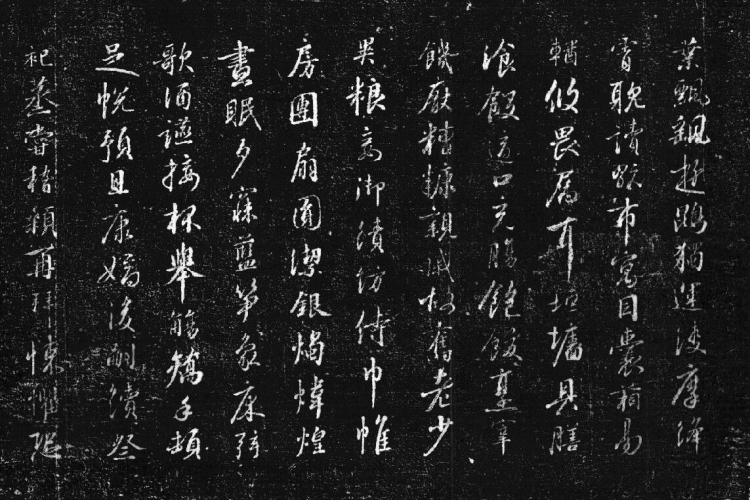 葉飄颻遊鵾獨運凌摩絳
霄耽讀翫市寓目囊箱易
輶攸畏屬耳垣墻具膳
飡飯適口充腸飽飫烹宰
饑厭糟糠親戚故舊老少
異粮妾御績紡侍巾帷
房團扇圓潔銀燭煒煌
晝眠夕寐藍笋象床弦
歌酒讌接杯舉觴矯手頓
足悅豫且康嫡後嗣續祭
祀蒸嘗稽顙再拜悚懼恐